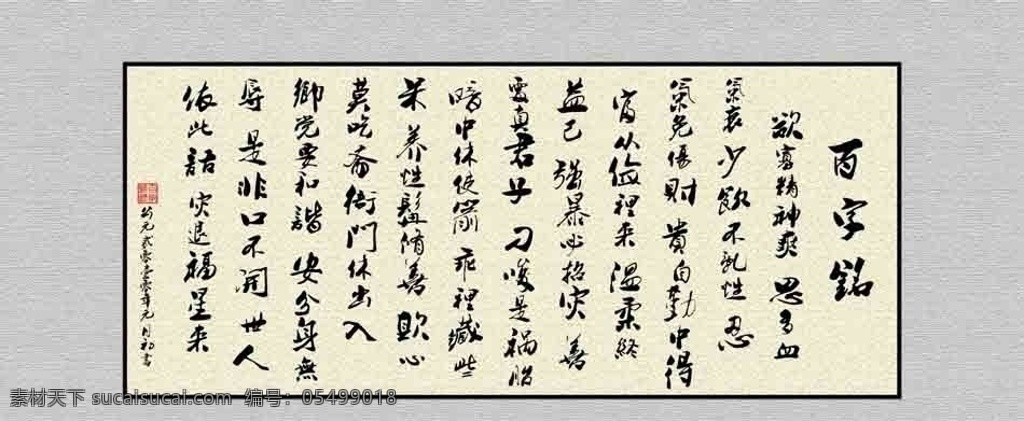 百字銘
欲寡精神爽 思多血
氣衰 少飲不亂性 忍
氣免傷財 貴自勤中得
富从儉裡来 温柔終
益己 強暴必招灾 善
處真君子 刁唆是禍胎
暗中休使箭 乖裡藏些
呆 养性鬚脩善 欺心
莫吃斋 衙門休出入
鄉党要和諧 安分身無
辱 是非口不開 世人
依此話 灾退福星来
公元貳零壹零年元月初書
素材天下 sucaisucai.com 编号：05499018